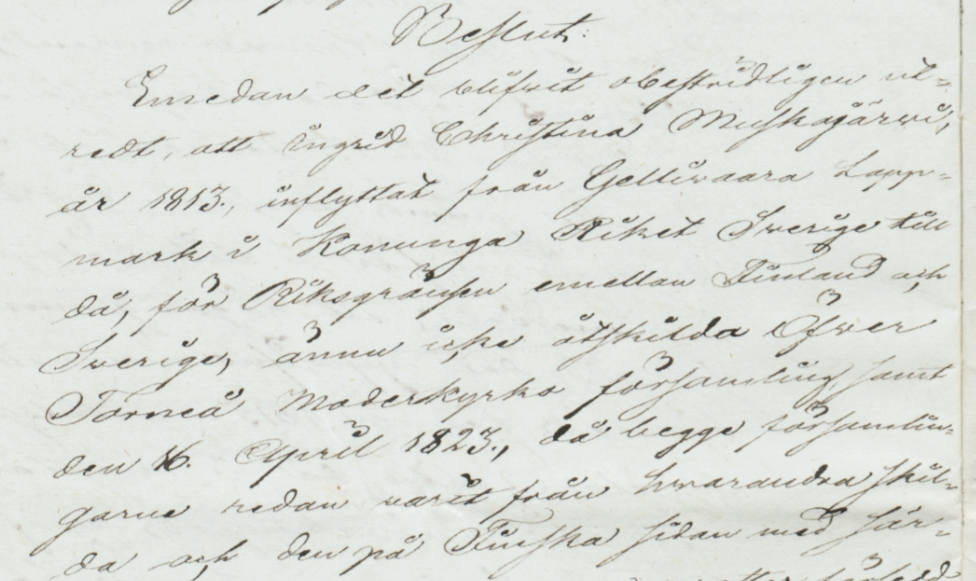 Beslut:
Emedan det blifvit obestridligen ut-
redt, att Ingrid Christina Muskajärvi,
år 1813., inflyttat från Gellivaara Lapp-
mark i Konunga Riket Sverige till
då, för Riksgränsen emellan Finland och
Sverige, ännu icke åtskilda Öfver
Torneå Moderkyrko församling, samt
den 16. April 1823., då begge församlin-
garne redan varit från hvarandra skil-
da och den på Finska sidan med sär-